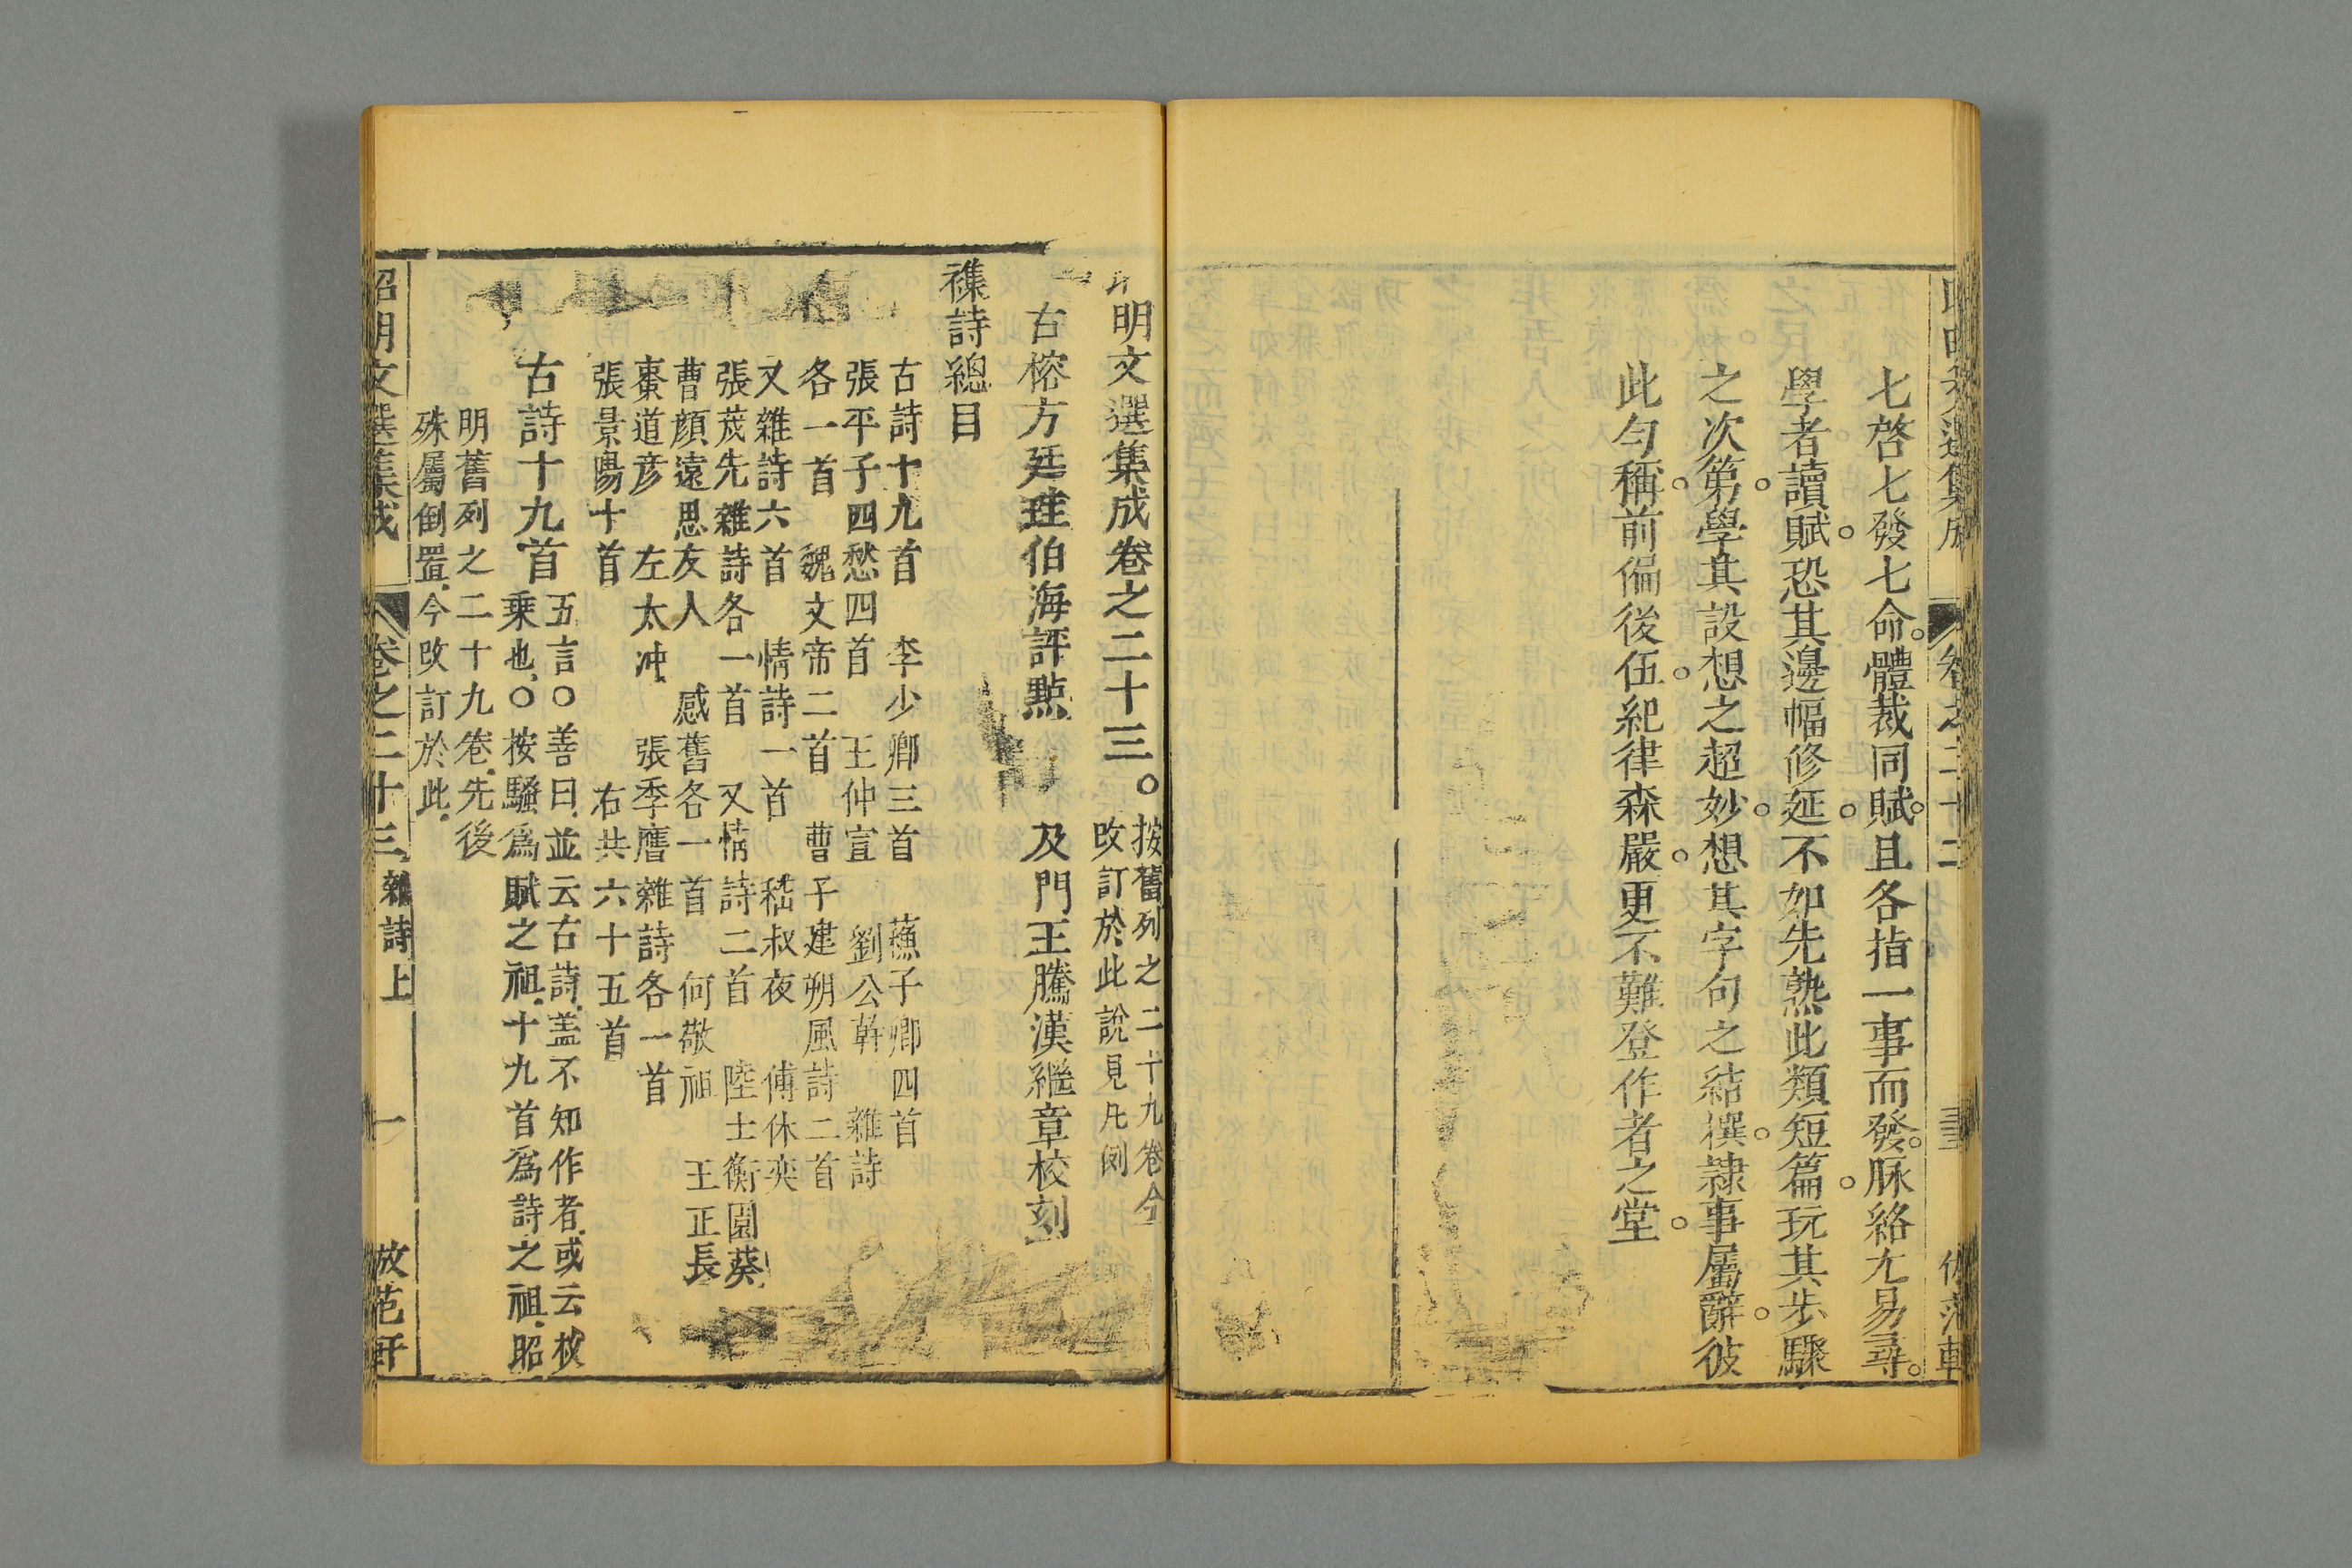 七啓七發七命。體裁同賦。且各指一事而發。脉絡尤易尋。
學者讀賦。恐其邊幅修延。不如先熟此類短篇。玩其步驟
之次第。學其設想之超妙。想其字句之結撰。隷事屬辭。彼
此勻稱。前偏後伍。紀律森嚴。更不難登作者之堂。
明文選集成卷之二十三。
按舊列之二十九卷今
改訂於此說見凡例
古榕方廷珪伯海評點 及門王騰漢繼章校刻
襍詩總目
古詩十九首 李少卿三首 蘇子卿四首
張平子四愁四首 王仲宣 劉公幹 雜詩
各一首 魏文帝二首 曹子建朔風詩二首
又雜詩六首 情詩一首 嵇叔夜 傅休奕
張茂先雜詩各一首 又情詩二首 陸士衡園葵
曹顏遠思友人 感舊各一首 何敬祖 王正長
棗道彦 左太冲 張季鷹雜詩各一首
張景陽十首 右共六十五首
古詩十九首
五言○善曰.並云古詩.盖不知作者.或云枚
乘也.○按騷爲賦之祖.十九首爲詩之祖.昭
明舊列之二十九卷.先後
殊屬倒置.今改訂於此.
昭明文選集成 卷之二十三 雜詩上 一 倣范軒